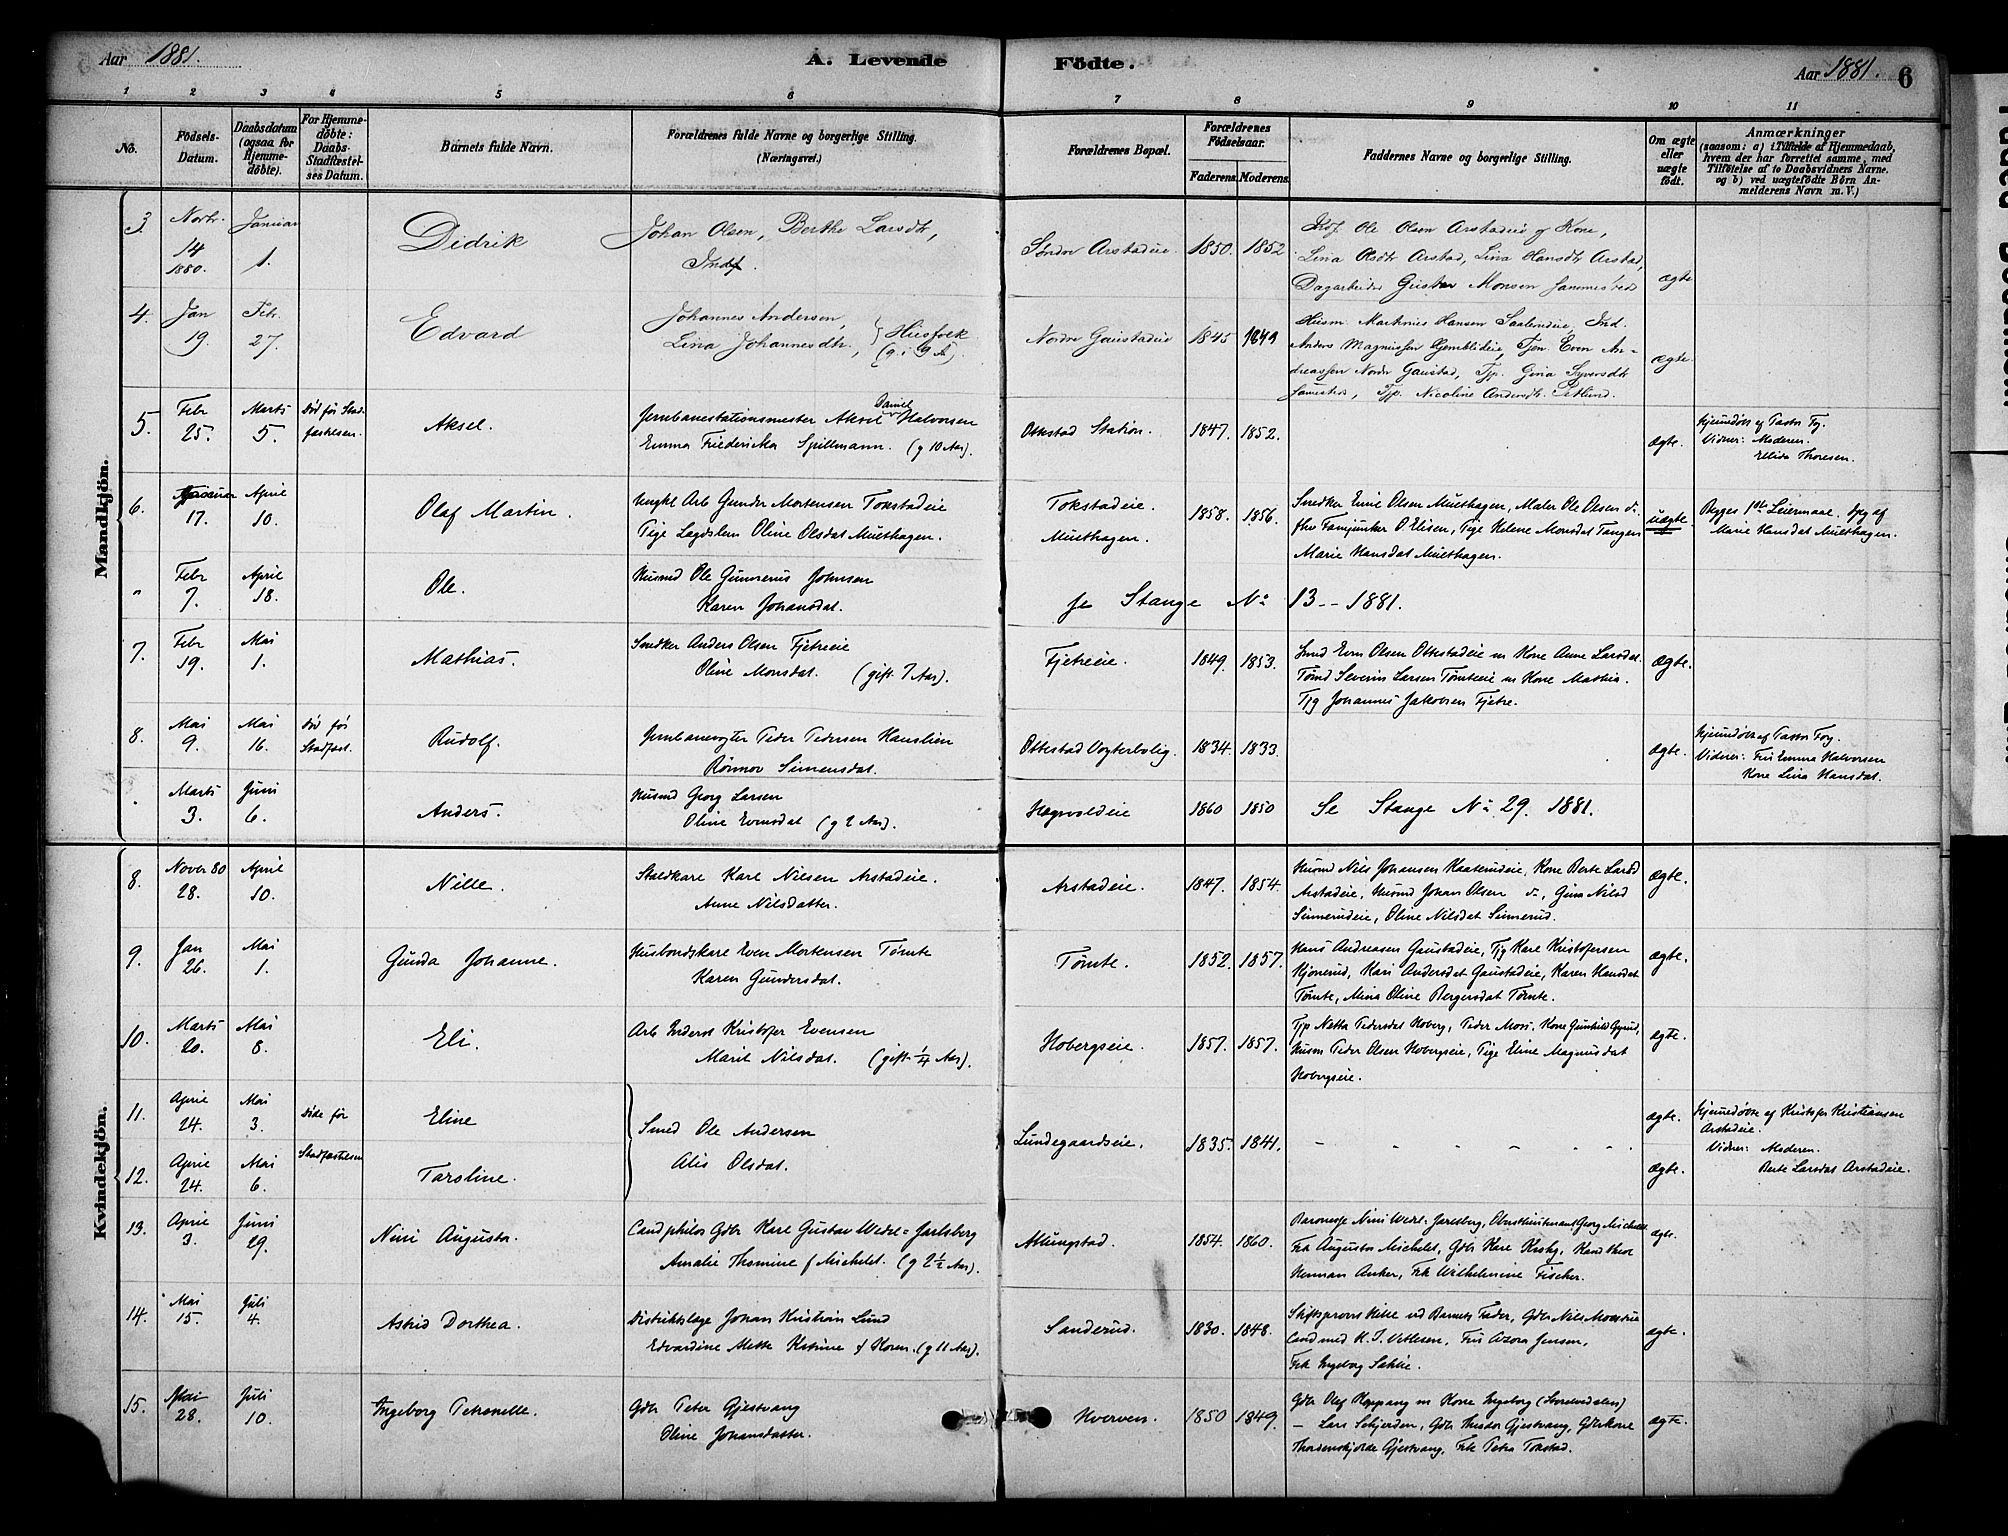 Aar 1881.
A. Levende Födte.
Aar 1881. 6
1 2 3 4 5 6 7 8 9 10 11
No.
Födsels-Datum.
Daabsdatum (ogsaa for Hjemmedöbte).
For Hjemmedöbte: Daabs-Stadfæstelses Datum.
Barnets fulde Navn.
Forældrenes fulde Navne og borgerlige Stilling. (Næringsvei.)
Forældrenes Bopæl.
Forældrenes Födselsaar.
Faderens. Moderens.
Faddernes Navne og borgerlige Stilling.
Om ægte eller uægte födt.
Anmærkninger
(saasom: a) i Tilfælde af Hjemmedaab, hvem der har forrettet samme, med Tilföielse af to Daabsvidners Navne. og b) ved uægtefödte Börn Anmelderens Navn m. V.)
Mandkjön.
3. Novbr. 14 1880. Januar 1. Didrik
Johan Olsen, Berthe Larsdtr, Inds.
Søndre Arstadeie 1850. 1852
Ole Olsen Arstadeie og Kone,
Lina Olsdtr Arstad, Lina Hansdtr Arstad,
Dagarbeider Gustav Monsen
ægte
4. Jan 19. Febr. 27. Edvard
Johannes Andersen,
Lina Johannesdtr, Husfolk (g. i 9 A).
Nordre Gaustadeie 1845 1849
Husm. Marthnius Hansen Saalundeie, Ind.
Anders Magnussen, Tjen. Even An-
dreassen Nordre Gaustad, Tjp. Gina Syversdtr
Tjp. Nicoline Andersdtr Østlund.
ægte
5. Febr 25. Marts 5. Død før Stadfæstelsen. Aksel.
Jernbanestationsmester Aksel Daniel Halvorsen
Emma Friedericka Spillmann. (g 10 Aar).
Ottestad Station. 1847. 1852.
ægte.
Hjemmedøbt af Pastor Foy.
Vidner: Moderen.
Ellida Thoresen.
6. Januar 17. April 10. Olaf Martin.
Ungkl Arb Gunder Mortensen Tokstadeie
Pige Lagdslem Oline Olsdat Muelhagen.
Tokstadeie.
Muelhagen.
1858. 1856.
Snedker Erme Olsen Muelhagen, Maler Ole Olsen do.
fhv Fanejunker O Elisen, Pige Helene Monsdat Tangen
Marie Hansdat Muelhagen.
uægte
Begges 1ste Leiermaal. Opg af
Marie Hansdat Muelhagen.
" Febr 7. April 18. Ole.
Husmd Ole Gunnerius Johnsen
Karen Johansdat.
Se Stange No 13 -- 1881.
7. Febr 19. Mai 1. Mathias.
Snedker Anders Olsen Fjetreeie
Oline Monsdat. (gift 7 Aar).
Fjetreeie. 1849. 1853.
Smed Even Olsen Ottestadeie m Kone Anne Larsdat
Tømd Severin Larsen Tømteeie m Kone Mathia.
Tjg Johannes Jakobsen Fjetre.
ægte.
8. Mai 9. Mai 16. Død før Stadfæst. Rudolf.
Jernbanevogter Peder Pedersen Hauslien
Rønnov Simensdat.
Ottestad Vogterbolig. 1834. 1833.
ægte.
Hjemmedøbt af Pastor Foy.
Vidner: Fru Emma Halvorsen
Kone Lina Hansdat.
. Marts 3. Juni 6. Anders.
Husmd Georg Larsen
Oline Evensdat (g 2 Aar).
Hagvoldeie 1860 1850
Se Stange No 29. 1881.
Kvindekjön.
8. Novbr 80 28. April 10. Nille.
Staldkarl Karl Nilsen Arstadeie.
Anne Nilsdatter.
Arstadeie. 1847. 1854.
Husmd Nils Johansen Kaaterudeie, Kone Berte Larsd
Arstadeie, Husmd Johan Olsen do, Gina Nilsd
Sinnerudeie, Oline Nilsdat Sinnerud.
ægte.
9. Jan 26. Mai 1. Gunda Johanne.
Husbondskarl Even Mortensen Tømte
Karen Gundersdat.
Tømte. 1852. 1857.
Hans Andreasen Gaustadeie, Tjg Karl Kristofersen
Hjonerud, Kari Andersdat Gaustadeie, Karen Hansdat
Tømte, Mina Oline Bergersdat Tømte.
ægte.
10. Marts 20. Mai 8. Eli.
Arb Inderst Kristofer Evensen
Marit Nilsdat. (gift ¼ Aar).
Hobergseie. 1857. 1857.
Tjp Netta Pedersdat Hoberg, Peder Mosi, Kone Gunhild Gyrud,
Husm Peder Olsen Hobergseie, Pige Eline Magnusdat
Hobergseie.
ægte.
11. April 24. Mai 3. Døde før Stadfæstelsen Eline
12. April 24. Mai 6. Caroline.
Smed Ole Andersen
Alis Olsdat.
Lundegaardseie. 1835. 1841.
ægte.
ægte.
Hjemmedøbte af Kristofer Kristiansen
Arstadeie.
Vidner: Moderen.
Berte Larsdat Arstadeie.
13. April 3. Juni 29. Nini Augusta.
Cand philos Gdbr Karl Gustav Wedel-Jarlsberg
Amalie Thomine f Michelet. (g 2½ Aar).
Atlungstad. 1854. 1860.
Baronesse Nini Wedel-Jarlsberg, Oberstlieutenant Georg Michelet
Frk Augusta Michelet, Gdbr Karl Krohg, Kand theol
Herman Anker, Frk Wilhelmine Fischer.
ægte.
14. Mai 15. Juli 4. Astrid Dorthea.
Distriktslæge Johan Kristian Lund
Edvardine Mette Katrine f Koren. (g 11 Aar).
Sanderud. 1830. 1848.
Stiftsprovst Hille ved Barnets Fader, Gdbr Nils
Cand med H. J. Vetlesen, Fru Azora Jensen,
Frk Ingeborg
ægte.
15. Mai 28. Juli 10. Ingeborg Petronelle.
Gdbr Peter Gjestvang
Oline Johansdatter.
Hverven. 1850 1849.
Gdbr Olaf Koppang m Kone Ingeborg (Storelvedalen)
- Lars Sehjerden, Gdbr Theodor Gjestvang, Gdbrkone
Thordenskjolde Gjestvang, Frk Petra Tokstad.
ægte.